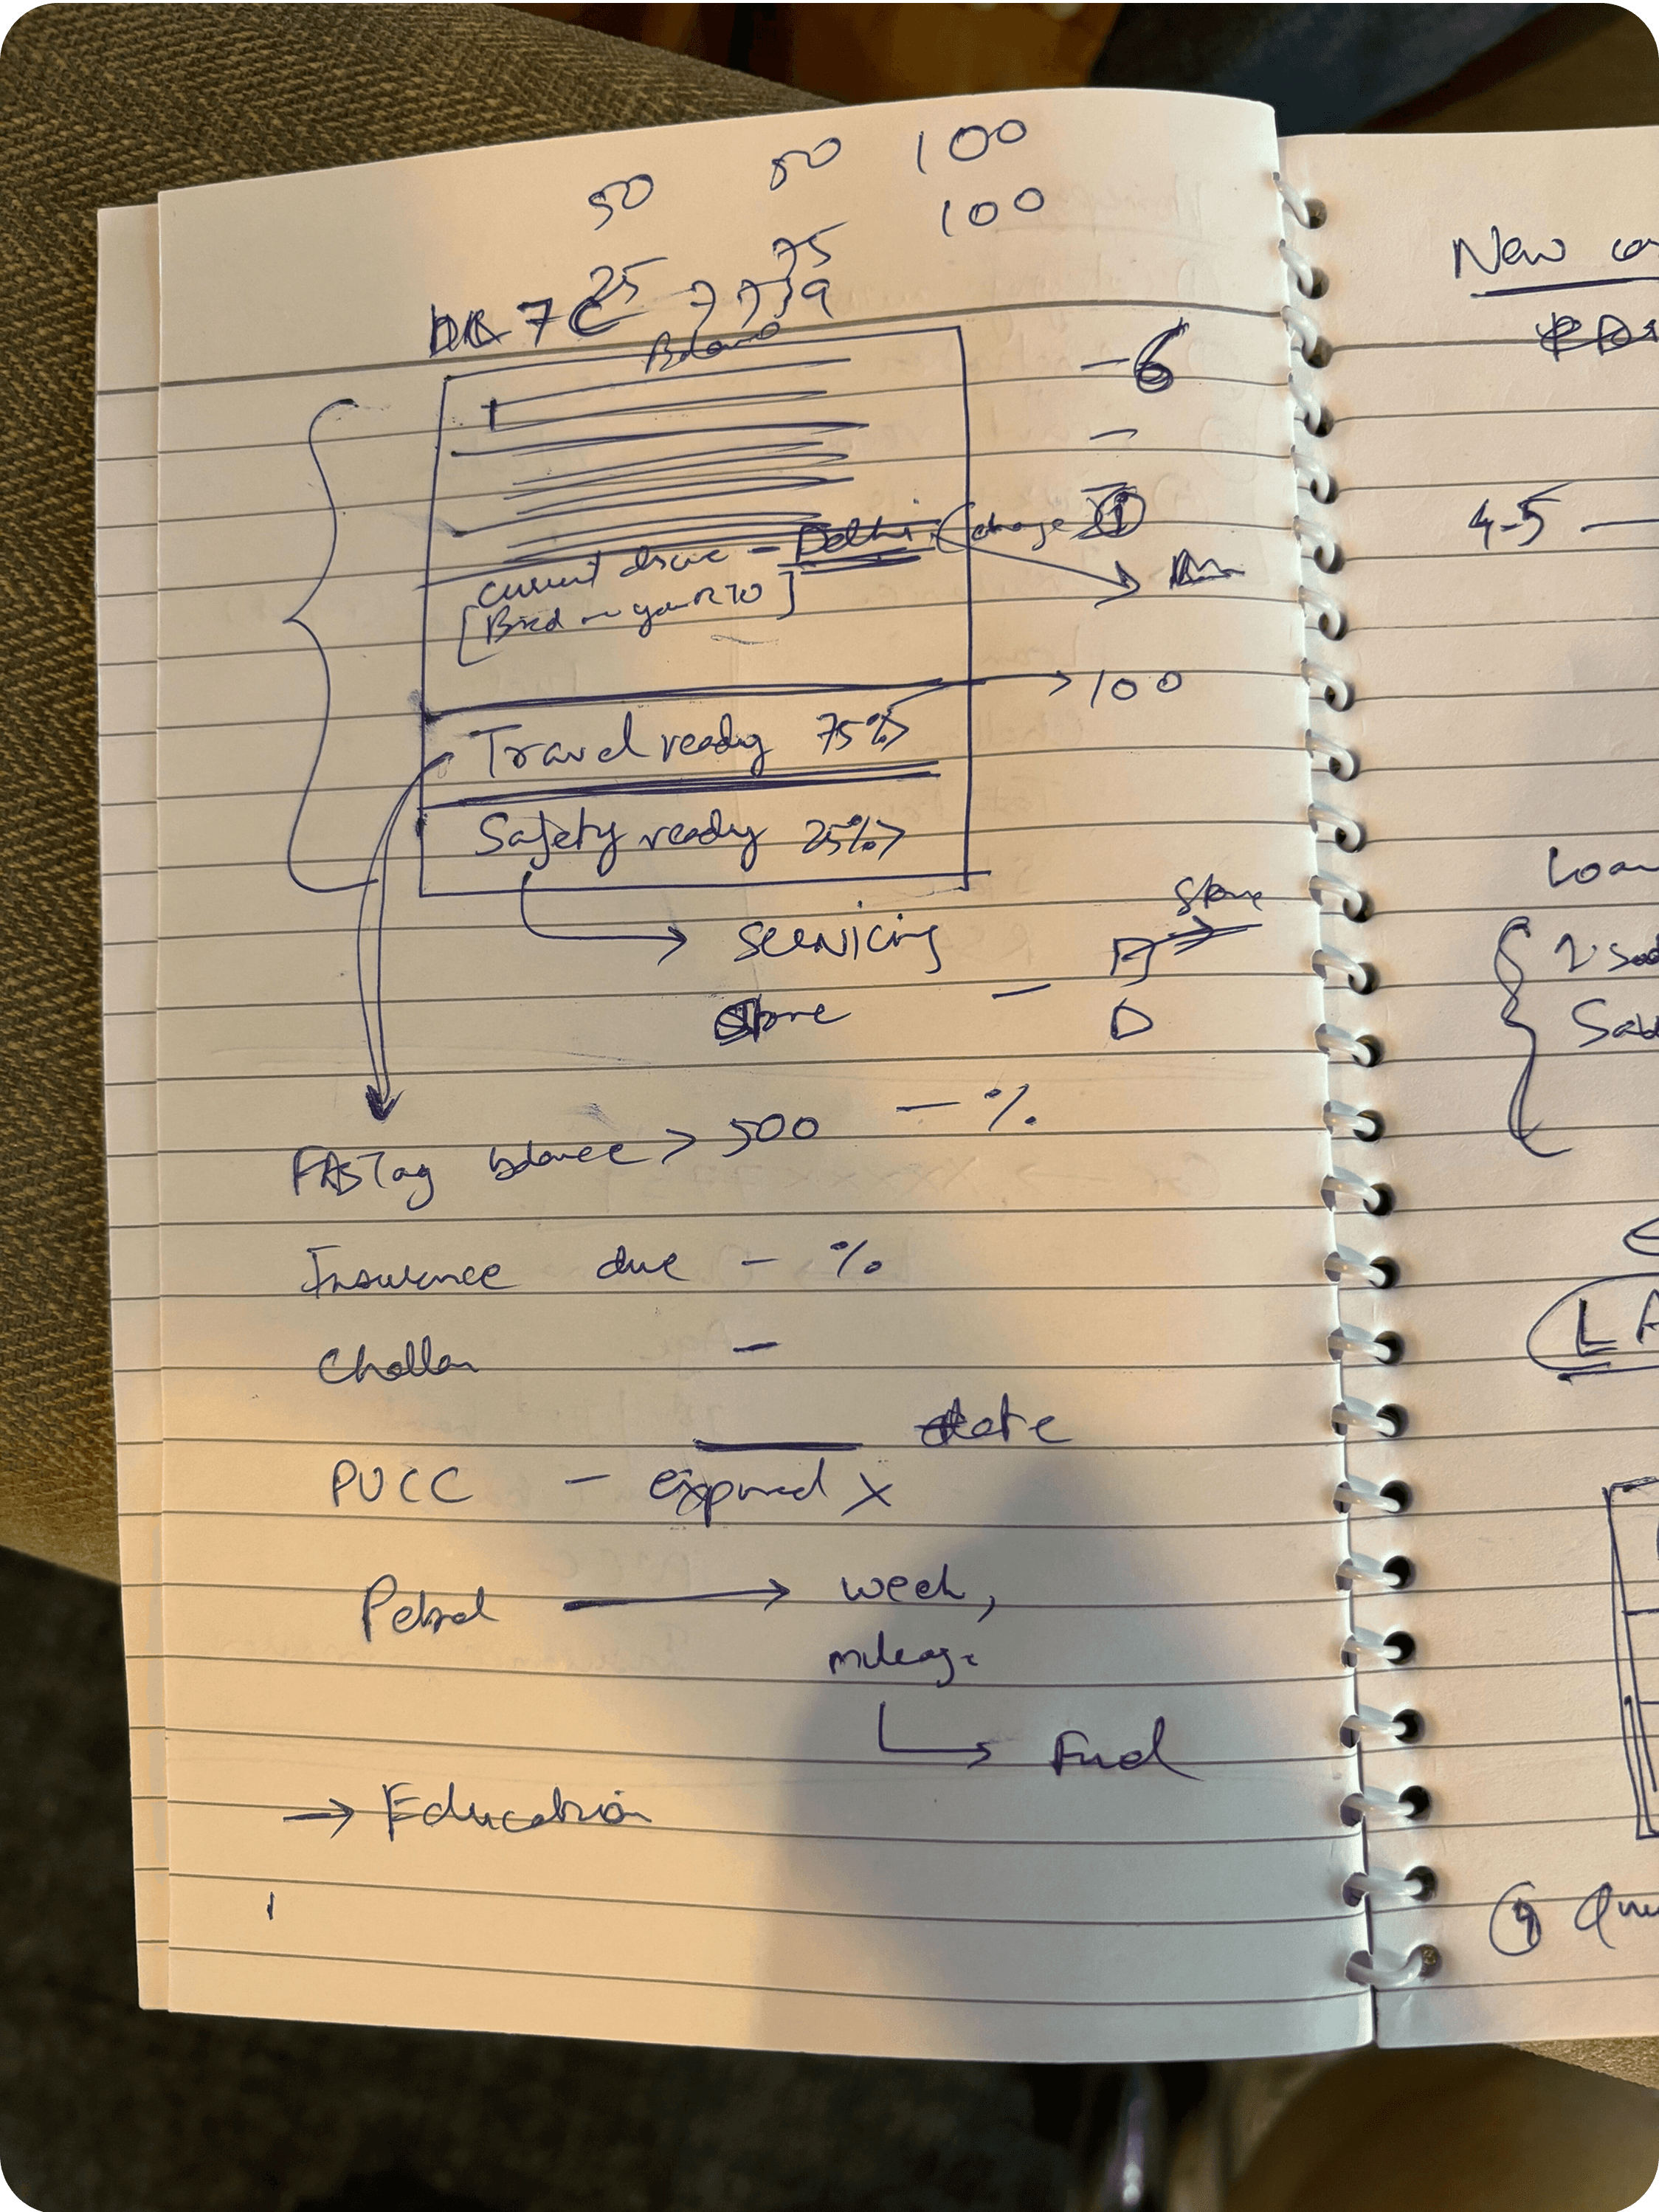 50 50 100
100
25 75
7C 7739
Balance
- 6
-
-
current drive - Delhi (change) 1
[Based on your RTO]
Travel ready 75% > → 100
Safety ready 25% >
→ servicing
Store
store -
FASTag balance > 500 - %
Insurance due - %
Challan -
date
PUCC - expired X
Petrol → week,
mileage
→ Fuel
→ Education
New
4-5 —
Loan
Used
L A
9